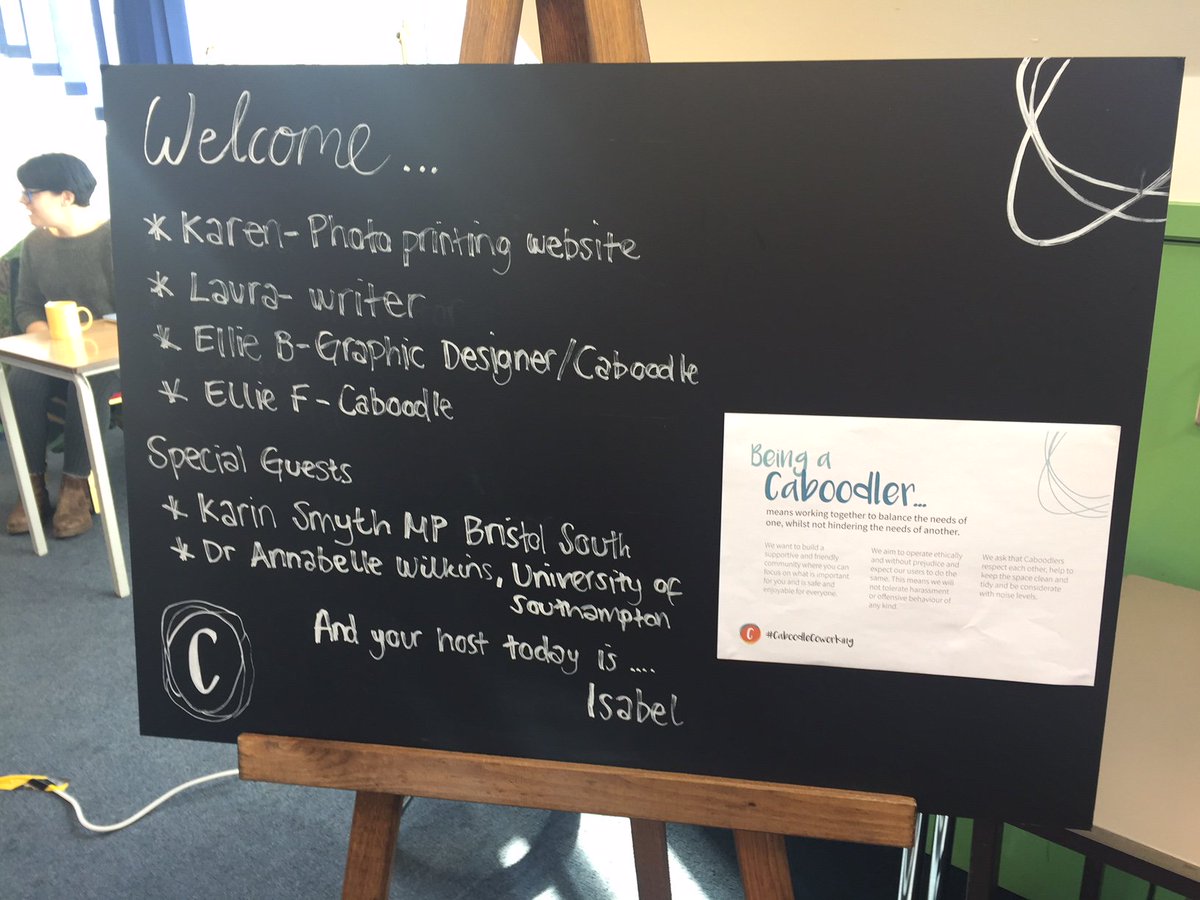 Welcome...
* Karen - Photo printing website
* Laura - writer
* Ellie B - Graphic Designer/Caboodle
* Ellie F - Caboodle
Special Guests
* Karin Smyth MP Bristol South
* Dr Annabelle Wilkins, University of
Southampton
And your host today is ....
Isabel
C
Being a
Caboodler...
means working together to balance the needs of
one, whilst not hindering the needs of another.
We want to build a
supportive and friendly
community where you can
focus on what is important
for you and is safe and
enjoyable for everyone.
We aim to operate ethically
and without prejudice and
expect our users to do the
same. This means we will
not tolerate harassment
or offensive behaviour of
any kind.
We ask that Caboodlers
respect each other, help to
keep the space clean and
tidy and be considerate
with noise levels.
C #CaboodleCoworking